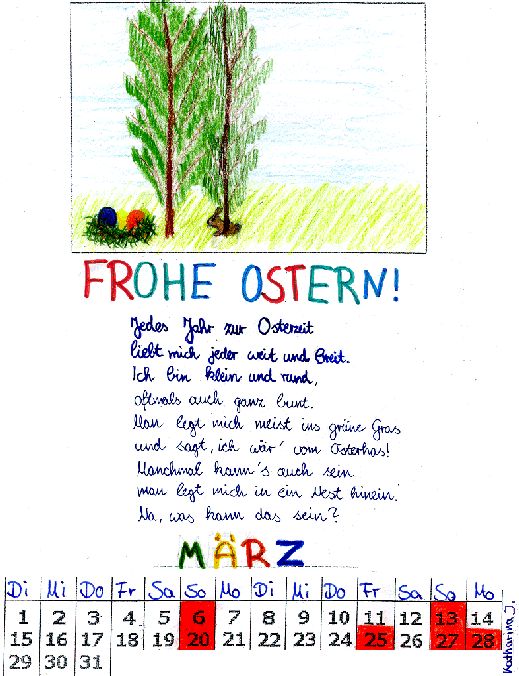 FROHE OSTERN!
Jedes Jahr zur Osterzeit
liebt mich jeder weit und breit.
Ich bin klein und rund,
oftmals auch ganz bunt.
Man legt mich meist ins grüne Gras
und sagt, ich wär' vom Osterhas!
Manchmal kann's auch sein
man legt mich in ein Nest hinein.
Na, was kann das sein?
MÄRZ
Di Mi Do Fr Sa So Mo Di Mi Do Fr Sa So Mo
1 2 3 4 5 6 7 8 9 10 11 12 13 14
15 16 17 18 19 20 21 22 23 24 25 26 27 28
29 30 31
Katharina J.